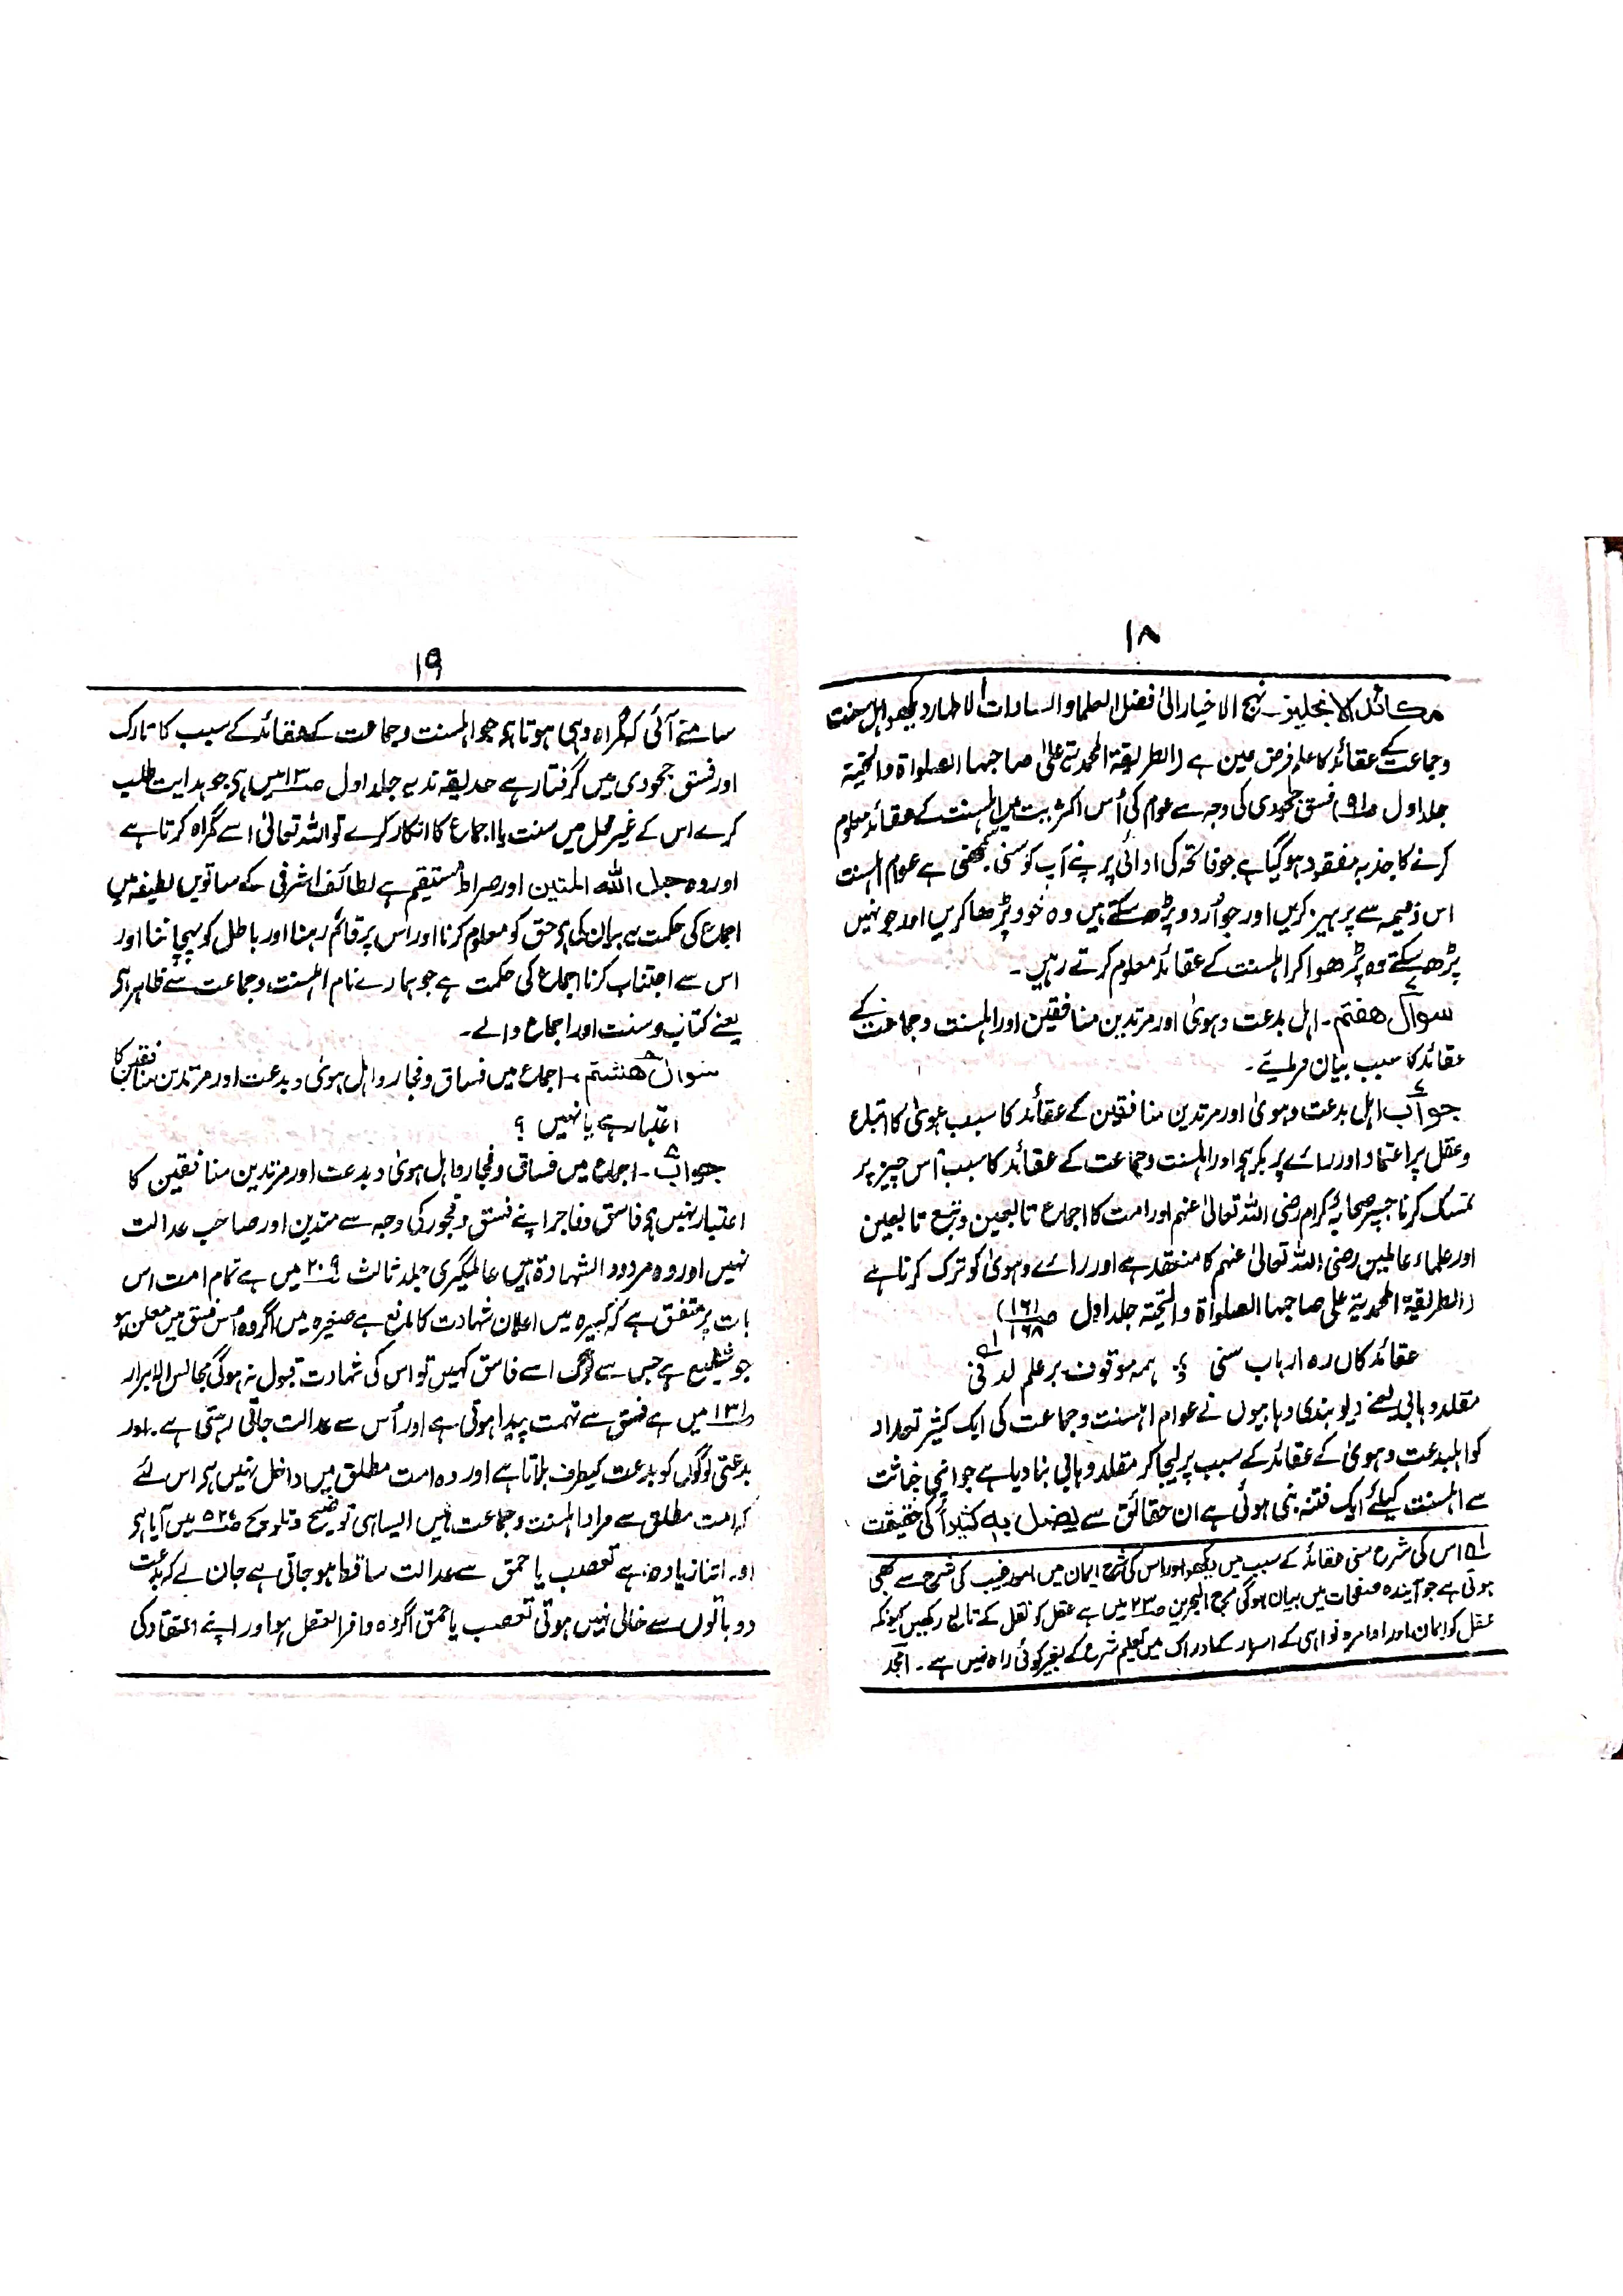 ۱۸
مکائد الانجلیز۔ نہج الاخیار الیٰ فضل العلما والسادات الاطہار دیکھو اہل سنت
وجماعت کے عقائد کا علم فرض عین ہے (الطریقۃ المحمدیۃ علیٰ صاحبہا الصلواۃ والتحیۃ
جلد اول صـ۹۱) فسق جحودی کی وجہ سے عوام کی اُس اکثریت میں اہلسنت کے عقائد معلوم
کرنے کا جذبہ مفقود ہوگیا ہے جو فاتحہ کی ادائی پر اپنے آپ کو سنی سمجھتی ہے عوام اہلسنت
اس ذمیمہ سے پرہیز کریں اور جو اُردو پڑھ سکتے ہیں وہ خود پڑھا کریں اور جو نہیں
پڑھ سکتے وہ پڑھوا کر اہلسنت کے عقائد معلوم کرتے رہیں۔
سوال ہفتم۔ اہل بدعت وہویٰ اور مرتدین منافقین اور اہلسنت وجماعت کے
عقائد کا سبب بیان فرمائیے۔
جواب ۷ اہل بدعت وہویٰ اور مرتدین منافقین کے عقائد کا سبب ہویٰ کا اتباع
وعقل پر اعتماد اور رائے پر تکیہ ہے اور اہلسنت وجماعت کے عقائد کا سبب اُس چیز پر
تمسک کرنا جسپر صحابۂ کرام رضی اللہ تعالیٰ عنہم اور امت کا اجماع تابعین وتبع تابعین
اور علماء عالمین رضی اللہ تعالیٰ عنہم کا منعقد ہے اور رائے وہویٰ کو ترک کرنا ہے
(الطریقۃ المحمدیۃ علی صاحبہا الصلواۃ والتحیۃ جلد اول صـ۱۶۱/۱۶۸)
عقائد کاں رہ ارباب سنی ؛ ہمہ موقوف بر علم لدنی ۱؎
مقلد وہابی یعنے دیوبندی وہابیوں نے عوام اہلسنت وجماعت کی ایک کثیر تعداد
کو اہلبدعت وہویٰ کے عقائد کے سبب پر لیجا کر مقلد وہابی بنا دیا ہے جو اپنی خباثت
سے اہلسنت کیلئے ایک فتنہ بنی ہوئی ہے ان حقائق سے یضل بہ کثیراً کی حقیقت
۱؎ اس کی شرح سنی عقائد کے سبب میں دیکھو اور اس کی شرح ایمان میں امور غیب کی شرح سے بھی
ہوتی ہے جو آیندہ صفحات میں بیان ہوگی مجمع البحرین صـ۲۳ میں ہے عقل کو نقل کے تابع رکھیں کیونکہ
عقل کو ایمان اور اوامر و نواہی کے اسرار کے ادراک میں تعلیم شرع کے بغیر کوئی راہ نہیں ہے۔ امجد
۱۹
سامنے آئی کہ گمراہ وہی ہوتا ہے جو اہلسنت وجماعت کے عقائد کے سبب کا تارک
اور فسق جحودی میں گرفتار ہے حدیقہ ندیہ جلد اول صـ۱۳ میں ہے جو ہدایت طلب
کرے اس کے غیر محل میں سنت یا اجماع کا انکار کرے تو اللہ تعالیٰ اسے گمراہ کرتا ہے
اور وہ حبل اللہ المتین اور صراط مستقیم ہے لطائف اشرفی کے ساتویں لطیفہ میں
اجماع کی حکمت یہ بیان کی ہے حق کو معلوم کرنا اور اس پر قائم رہنا اور باطل کو پہچاننا اور
اس سے اجتناب کرنا اجماع کی حکمت ہے جو ہمارے نام اہلسنت وجماعت سے ظاہر ہے
یعنے کتاب وسنت اور اجماع والے۔
سوال ہشتم۔ اجماع میں فساق وفجار و اہل ہویٰ وبدعت اور مرتدین منافقین کا
اعتبار ہے یا نہیں ؟
جواب ۸۔ اجماع میں فساق وفجار واہل ہویٰ وبدعت اور مرتدین منافقین کا
اعتبار نہیں ہے فاسق وفاجر اپنے فسق وفجور کی وجہ سے متدین اور صاحب عدالت
نہیں اور وہ مردود الشہادۃ ہیں عالمگیری جلد ثالث صـ۲۰۹ میں ہے تمام امت اس
بات پر متفق ہے کہ کبیرہ میں اعلان شہادت کا مانع ہے صغیرہ میں اگر وہ اُس فسق میں معلن ہو
جو شنیع ہے جس سے لوگ اسے فاسق کہیں تو اس کی شہادت قبول نہ ہوگی مجالس الابرار
صـ۱۳۱ میں ہے فسق سے تہمت پیدا ہوتی ہے اور اُس سے عدالت جاتی رہتی ہے۔ اور
بدعتی لوگوں کو بدعت کیطرف بلاتا ہے اور وہ امت مطلق میں داخل نہیں ہے اس لئے
کہ امت مطلق سے مراد اہلسنت وجماعت ہیں ایسا ہی توضیح وتلویح صـ۵۲۶ میں آیا ہے
اور اتنا زیادہ ہے تعصب یا حمق سے عدالت ساقط ہوجاتی ہے جان لے کہ بدعت
دو باتوں سے خالی نہیں ہوتی تعصب یا حمق اگر وہ وافر العقل ہو اور اپنے اعتقاد کی